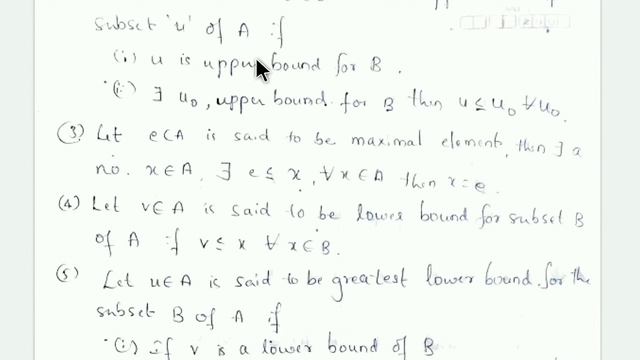 subset 'u' of A if
(i) u is upper bound for B.
(ii) ∃ u₀, upper bound for B then u ≤ u₀ ∀ u₀.
(3) Let e∈A is said to be maximal element, then ∃ a
no. x∈A, ∃ e ≤ x, ∀ x∈A then x = e.
(4) Let v∈A is said to be lower bound for subset B
of A if v ≤ x ∀ x∈B.
(5) Let u∈A is said to be greatest lower bound for the
subset B of A if
(i) If v is a lower bound of B